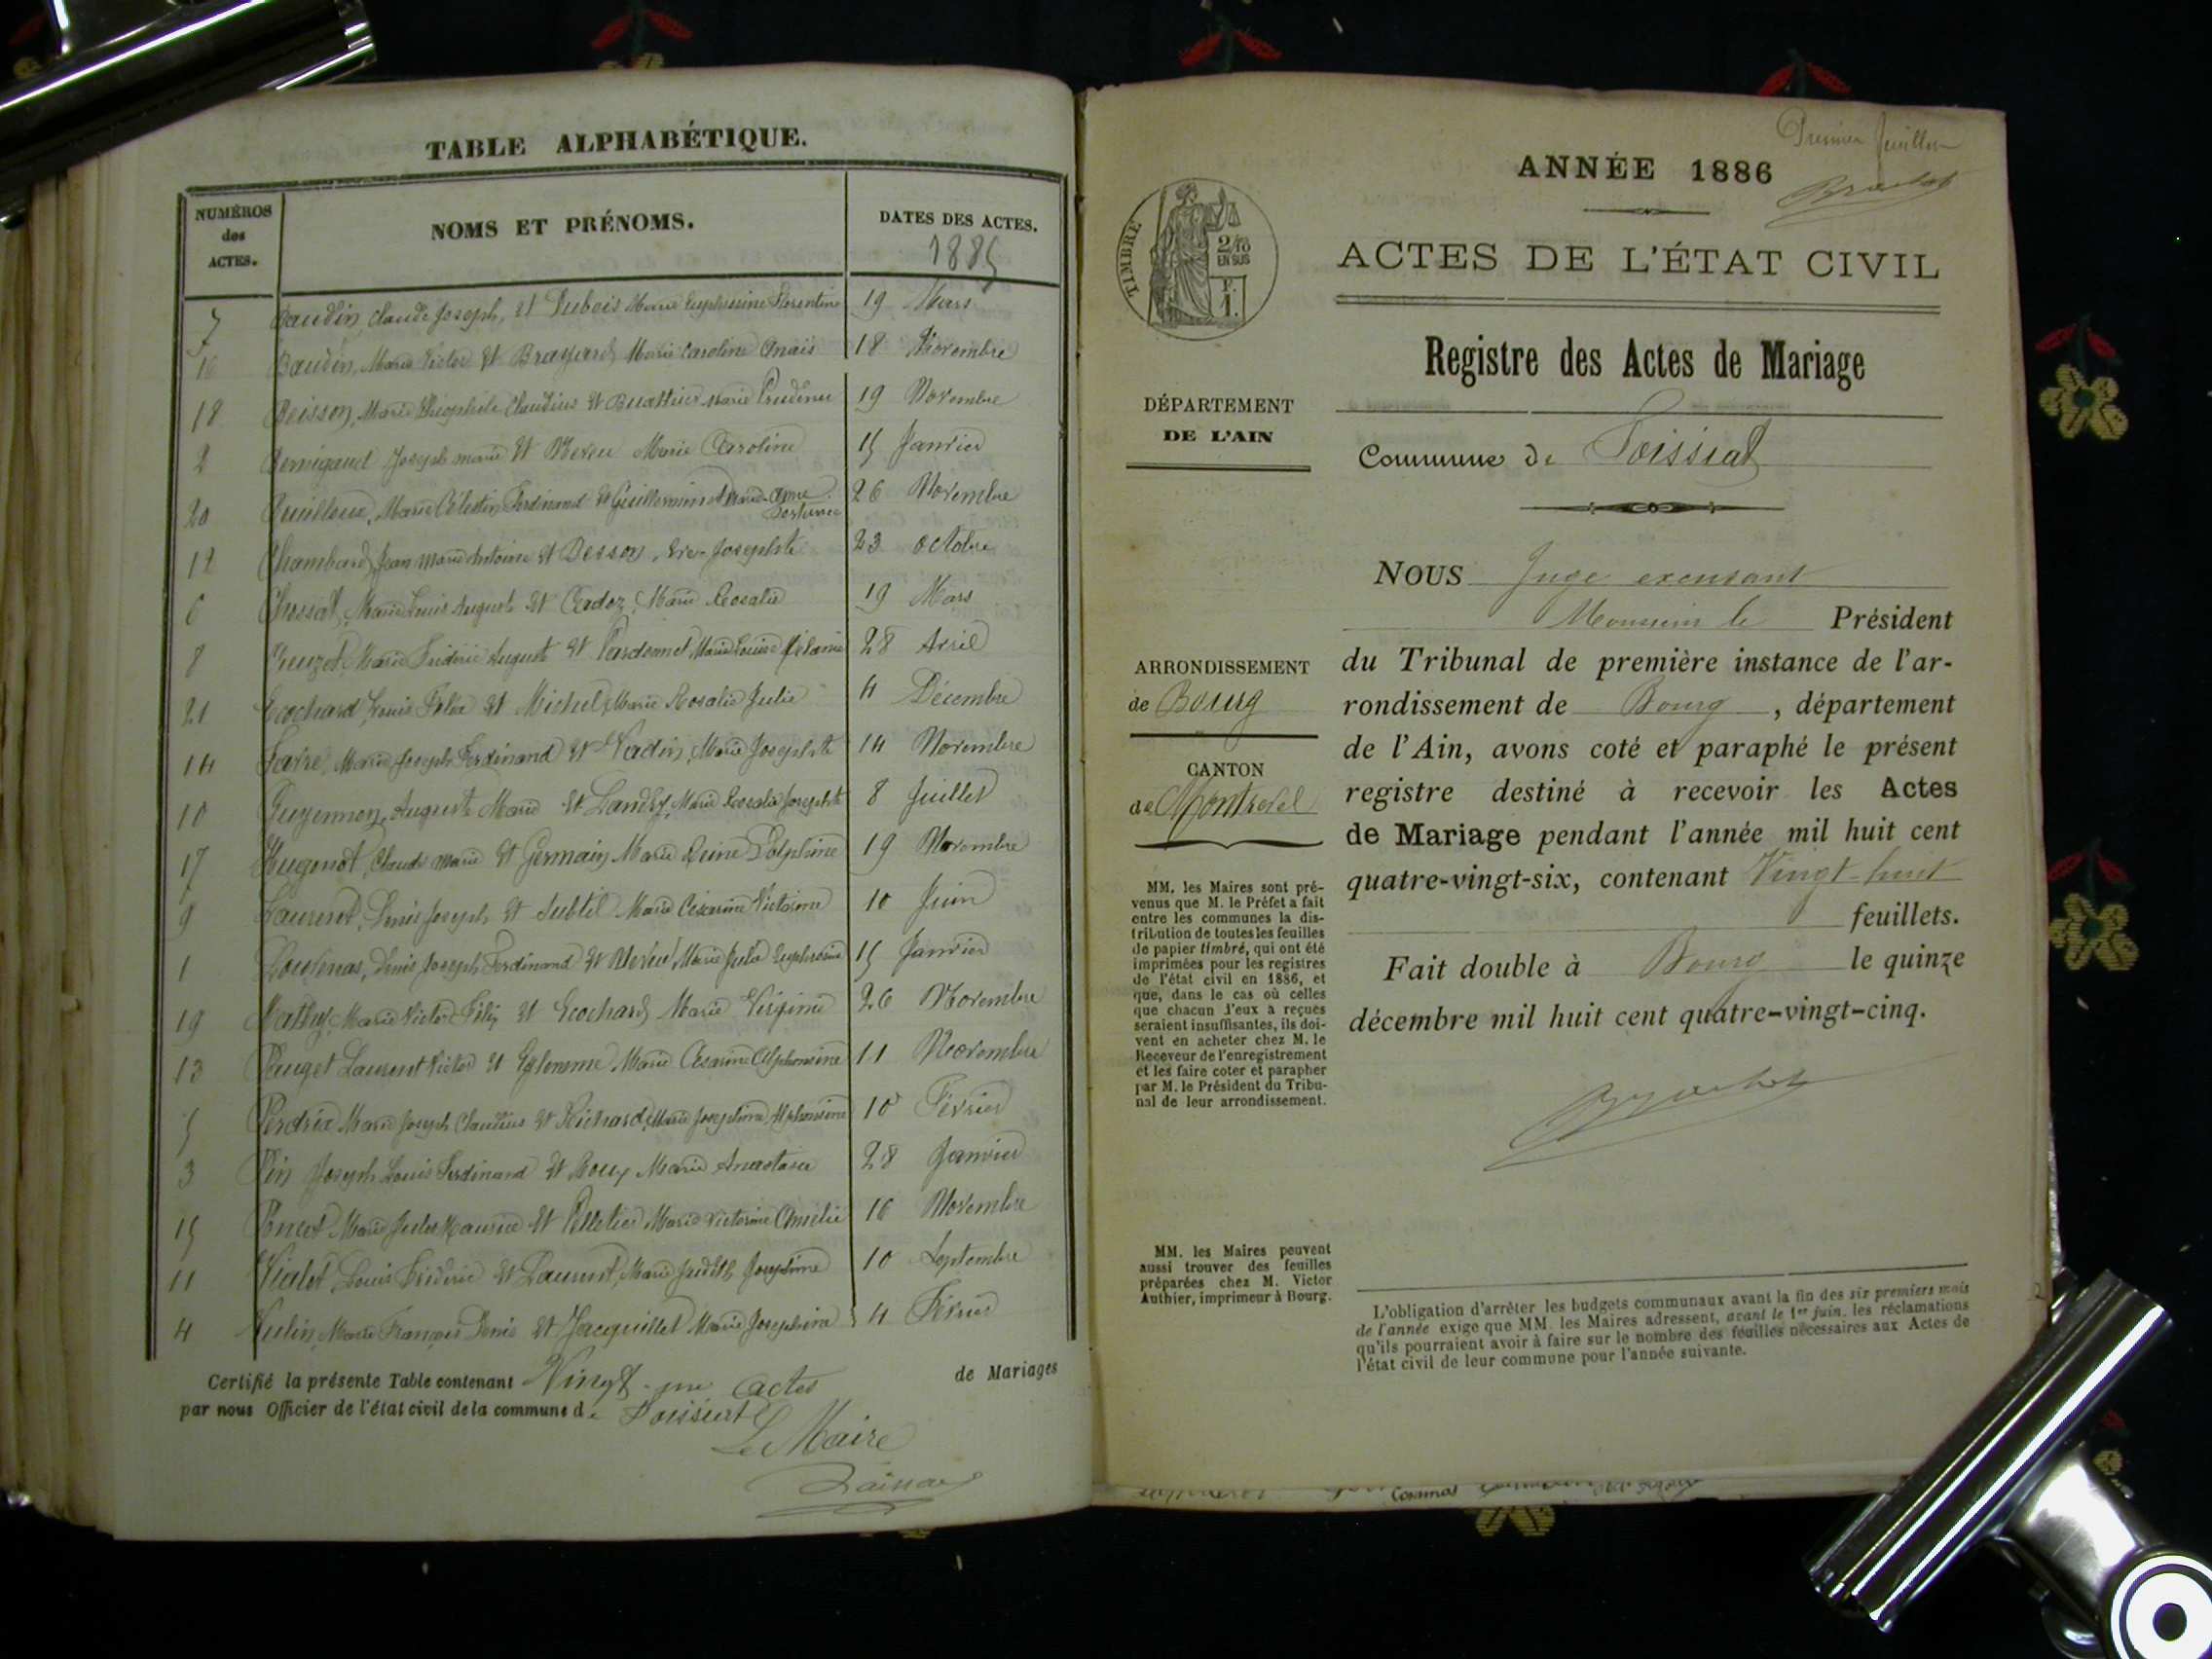 TABLE ALPHABÉTIQUE.
NUMÉROS des ACTES.
NOMS ET PRÉNOMS.
DATES DES ACTES.
1885
7 Baudin, Claude Joseph, et Dubois Marie Euphrosine Florentine 19 Mars
16 Baudin, Marie Victor et Brayard Marie Caroline Anaïs 18 Novembre
18 Boisson, Marie Théophile Claudius et Buattier Marie Prudence 19 Novembre
2 Joseph marie et Neveu Marie Caroline 15 Janvier
20 Marie Célestin Ferdinand et Guillemin 26 Novembre
12 Chambard, Jean Marie Antoine et Besson, Josephte 23 octobre
6 Chossat, Marie Louis Auguste et Cadoz, Marie Rosalie 19 Mars
8 Marie Frédéric Auguste et Marie Louise 28 Avril
21 Ecochard, Louis Félix et Michel, Marie Rosalie Julie 4 Décembre
14 Favre, Marie Joseph Ferdinand et Nadin, Marie Josephte 14 Novembre
10 Guyennon, Auguste Marie et Landry, Marie Rosalie Josephte 8 Juillet
17 Hugonot, Claude Marie et Germain, Marie Reine Delphine 19 Novembre
9 Laurent, Denis Joseph et Subtil Marie Césarine Victorine 10 Juin
1 Denis Joseph Ferdinand et Neveu, Marie Julie Euphrosine 15 Janvier
19 Mathy, Marie Victor Félix et Ecochard Marie Virginie 26 Novembre
13 Pauget Laurent Victor et Marie Césarine Alphonsine 11 Novembre
5 Perdrix Marie Joseph Claudius et Richard, Marie Josephine Alphonsine 10 Février
3 Pin Joseph Louis Ferdinand et Roux Marie Anastasie 28 Janvier
15 Poncet Marie Jules Maurice et Pelletier Marie Victorine Amélie 16 Novembre
11 Vialet, Louis Frédéric et Laurent, Marie Judith Joséphine 10 Septembre
4 Vulin, Marie François Denis et Jacquillet Marie Josephine 4 Février
Certifié la présente Table contenant Vingt-un actes de Mariages
par nous Officier de l'état civil de la commune de Foissiat
Le Maire
Premier feuillet
ANNÉE 1886
ACTES DE L'ÉTAT CIVIL
TIMBRE
2/10
EN SUS
F.
1.
Registre des Actes de Mariage
DÉPARTEMENT
DE L'AIN
Commune de Foissiat
NOUS Juge excusant
Monsieur le Président
du Tribunal de première instance de l'ar-
rondissement de Bourg, département
de l'Ain, avons coté et paraphé le présent
registre destiné à recevoir les Actes
de Mariage pendant l'année mil huit cent
quatre-vingt-six, contenant Vingt-huit
feuillets.
Fait double à Bourg le quinze
décembre mil huit cent quatre-vingt-cinq.
ARRONDISSEMENT
de Bourg
CANTON
de Montrevel
MM. les Maires sont pré-
venus que M. le Préfet a fait
entre les communes la dis-
tribution de toutes les feuilles
de papier timbré, qui ont été
imprimées pour les registres
de l'état civil en 1886, et
que, dans le cas où celles
que chacun d'eux a reçues
seraient insuffisantes, ils doi-
vent en acheter chez M. le
Receveur de l'enregistrement
et les faire coter et parapher
par M. le Président du Tribu-
nal de leur arrondissement.
MM. les Maires peuvent
aussi trouver des feuilles
préparées chez M. Victor
Authier, imprimeur à Bourg.
L'obligation d'arrêter les budgets communaux avant la fin des six premiers mois
de l'année exige que MM. les Maires adressent, avant le 1er juin, les réclamations
qu'ils pourraient avoir à faire sur le nombre des feuilles nécessaires aux Actes de
l'état civil de leur commune pour l'année suivante.